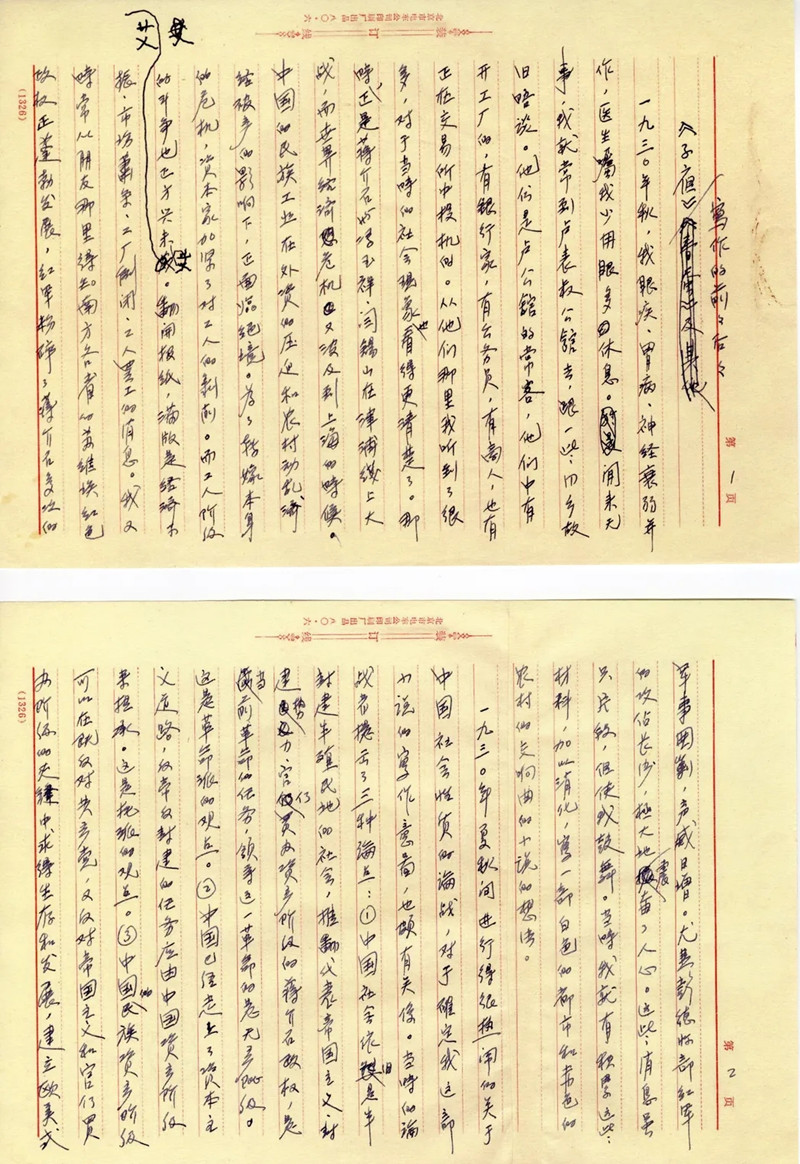 北京市电车公司印刷厂出品 八〇·六
装 订 线
第 1 页
《子夜》写作的前前后后
一九三〇年秋，我眼疾、胃病、神经衰弱并
作，医生嘱我少用眼多休息。闲来无
事，我就常到卢表叔公馆去，跟一些同乡故
旧晤谈。他们是卢公馆的常客，他们中有
开工厂的，有银行家，有公务员，有商人，也有
正在交易所中投机的。从他们那里我听到了很
多，对于当时的社会现象也看得更清楚了。那
时，正是蒋介石与冯玉祥、阎锡山在津浦线上大
战，而世界经济危机又波及到上海的时候。
中国的民族工业在外资的压迫和农村动乱、经济
破产的影响下，正面临绝境。为了转嫁本身
的危机，资本家加紧了对工人的剥削。而工人阶级
的斗争也正方兴未艾。翻开报纸，满版是经济不
振、市场萧条、工厂倒闭、工人罢工的消息。我又
时常从朋友那里得知南方各省的苏维埃红色
政权正蓬勃发展，红军粉碎了蒋介石多次的
(1326)
艾
北京市电车公司印刷厂出品 八〇·六
装 订 线
第 2 页
军事围剿，声威日增。尤其彭德怀部红军
的攻占长沙，极大地震奋了人心。这些消息虽
只片段，但使我鼓舞。当时我就有积累这些
材料，加以消化，写一部白色的都市和赤色的
农村的交响曲的小说的想法。
一九三〇年夏秋间进行得很热闹的关于
中国社会性质的论战，对于确定我这部
小说的写作意图，也颇有关系。当时的论
战者提出了三种论点：①中国社会依旧是半
封建半殖民地的社会，推翻代表帝国主义、封
建势力、官僚买办资产阶级的蒋介石政权，是
当前革命的任务，领导这一革命的是无产阶级。
这是革命派的观点。②中国已经走上了资本主
义道路，反帝反封建的任务应由中国资产阶级
来担承。这是托派的观点。③中国的民族资产阶级
可以在既反对共产党，又反对帝国主义和官僚买
办阶级的夹缝中求得生存和发展，建立欧美式
(1326)